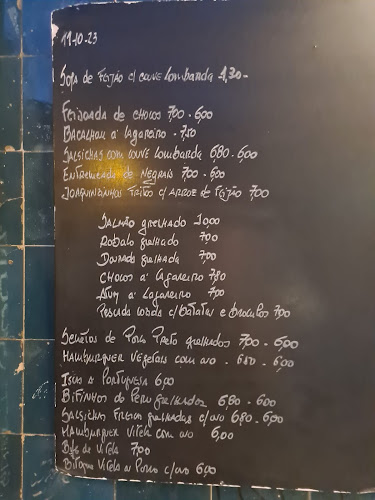 19-10-23
Sopa de Feijão c/ couve lombarda 1,30-
Feijoada de chocos 7,00 - 6,00
Bacalhau à lagareiro - 7,50
Salsichas com couve lombarda 6,80 - 6,00
Entremeada de Negrais 7,00 - 6,00
Joaquinzinhos fritos c/ arroz de feijão 7,00
Salmão grelhado 10,00
Robalo grelhado 7,00
Dourada grelhada 7,00
Chocos à lagareiro 7,80
Atum à lagareiro 7,00
Pescada cozida c/ batatas e brocolos 7,00
Secretos de Porco Preto grelhados 7,00 - 6,00
Hamburguer vegetais com ovo - 6,80 - 6,00
Iscas à Portuguesa 6,00
Bifinhos de Peru grelhados 6,80 - 6,00
Salsichas frescas grelhadas c/ ovo 6,80 - 6,00
Hamburguer vitela com ovo 6,00
Bife de vitela 7,00
Bitoque vitela ou Porco c/ ovo 6,00